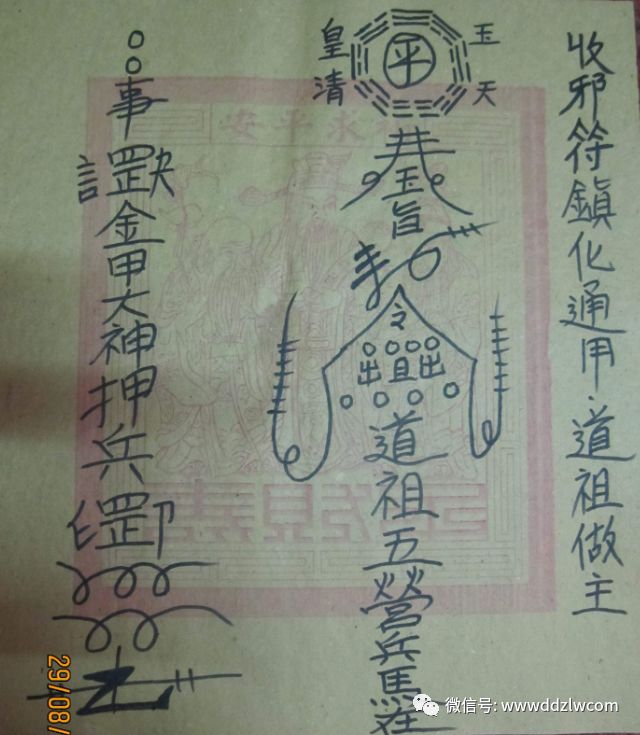 收邪符鎮化通用·道祖做主
玉天
皇清
平
玉旨
令
道祖五營兵馬
事
金甲大神押兵
安平求
29/08/
微信号: wwwddzlwcom